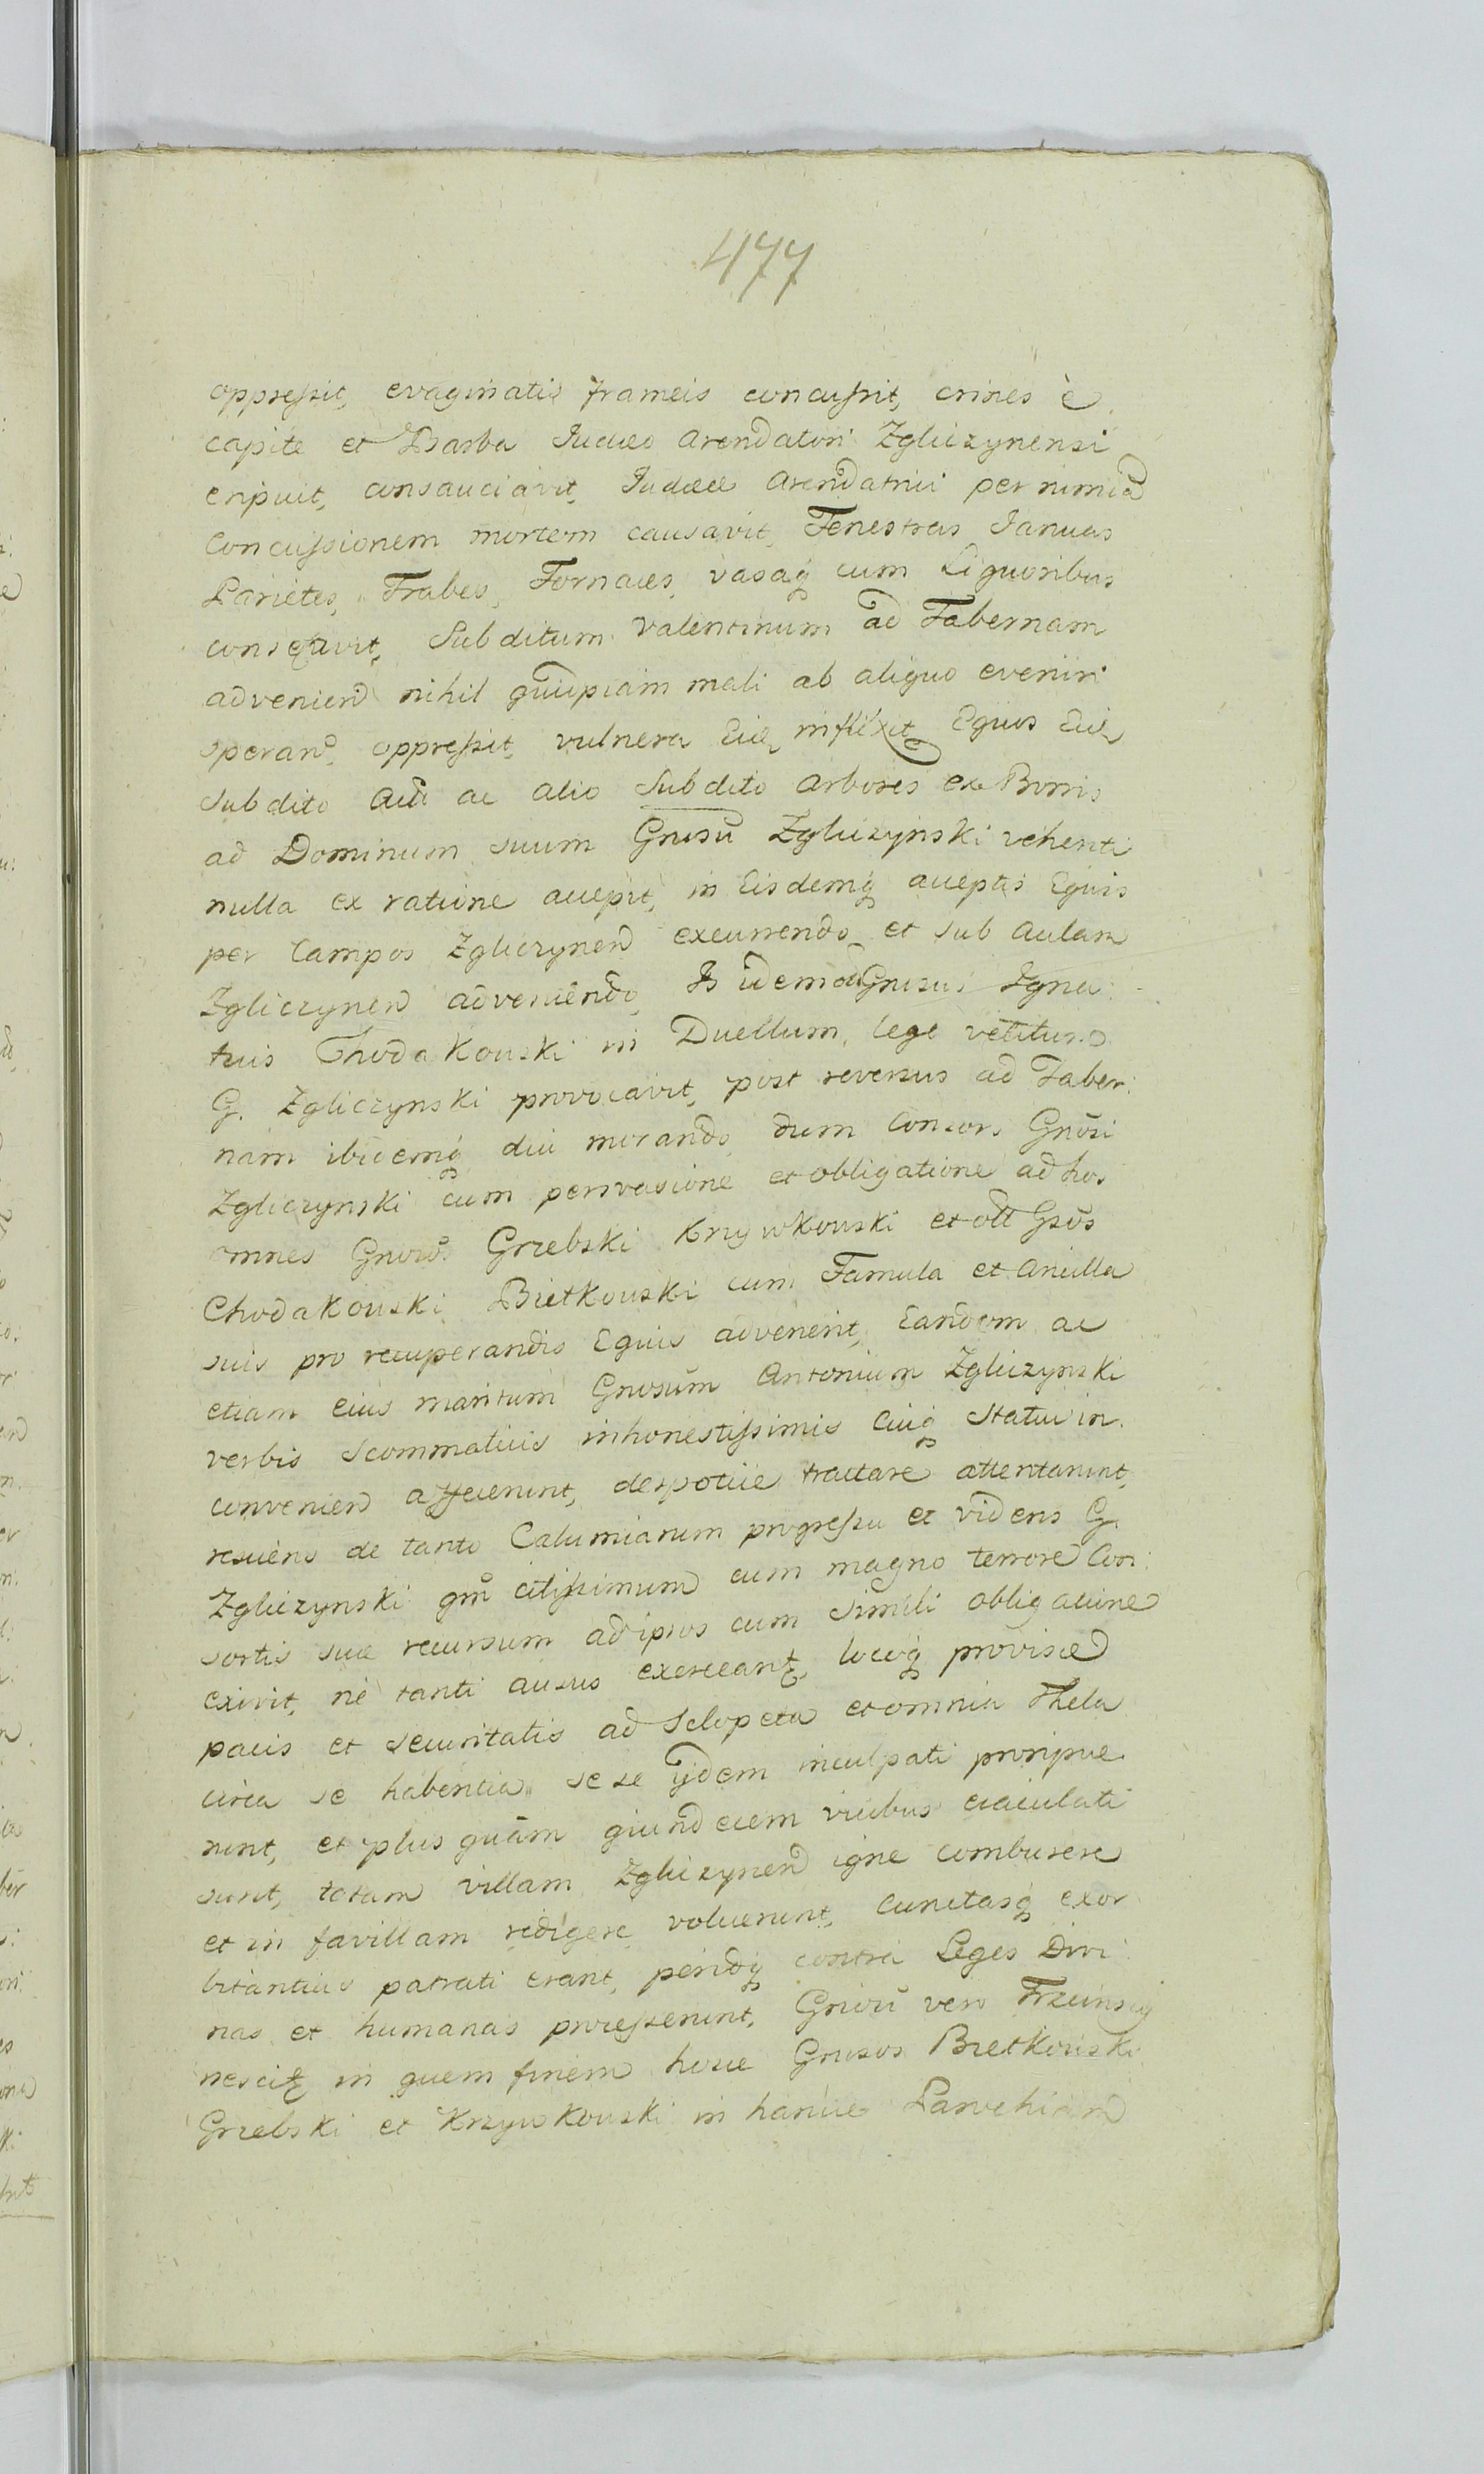 477
oppressit, evaginatis frameis concussit, crines è
capite et Barba Judæo Arendatori Zgliczynensi
eripuit, consauciavit, Judææ Arendatrici per nimiã
Concussionem mortem causavit, Fenestras Januas
Parietes, Trabes, Fornaces, vasaq cum Liquoribus
consecavit, Subditum Valentinum ad Tabernam
advenien nihil quidpiam mali ab aliquo eveniri
speran, oppressit, vulnera Eidē inflixit, Equos Eidē
Subdito Actī ac alio Subdito Arbores ex Borris
ad Dominum suum Gnosū Zgliczynski vehenti
nulla ex ratione accepit, in Eisdemq acceptis Equis
per Campos Zgliczynen excurrendo et sub Aulam
Zgliczynen adveniendo, Is idemq Gnosus Igna:
tius Chodakouski in Duellum, lege vetitum
G. Zgliczynski provocavit, post reversus ad Taber:
nam ibidemq diu morando dum Consors Gnosi
Zgliczynski cum persvasione et obligatione ad hos
omnes Gnosos Grzebski Krzywkouski et ott Gsos
Chodakouski Bietkouski cum Famula et Ancilla
suis pro recuperandis Equis advenerit, Eandem ac
etiam eius maritum Gnosum Antonium Zgliczynski
verbis Scommaticis inhonestissimis Cuiq Statui in
convenien affecerunt, despotice tractare attentarunt,
resciens de tanto Calumniarum progressu et videns G.
Zgliczynski qm citissimum cum magno terrore Con:
sortis suæ recursum ad ipsos cum simili obligacione
exivit, ne tanti ausus exerceant, locoq provisæ
pacis et securitatis ad Sclopeta et omnia Thela
circa se habentia sese ijdem inculpati proripue
runt, et plus quam quindecim vicibus eiaculati
sunt, totam villam Zgliczynen igne comburere
et in favillam redigere voluerunt, Cunctasq exor
bitantias patrati erant, peridq contra Leges Divi
nas et humanas processerunt, Gnosū vero Trzcinscÿ
nescit in quem finem hosce Gnosos Bietkouski
Grzebski et Krzywkouski in hance Parochiam